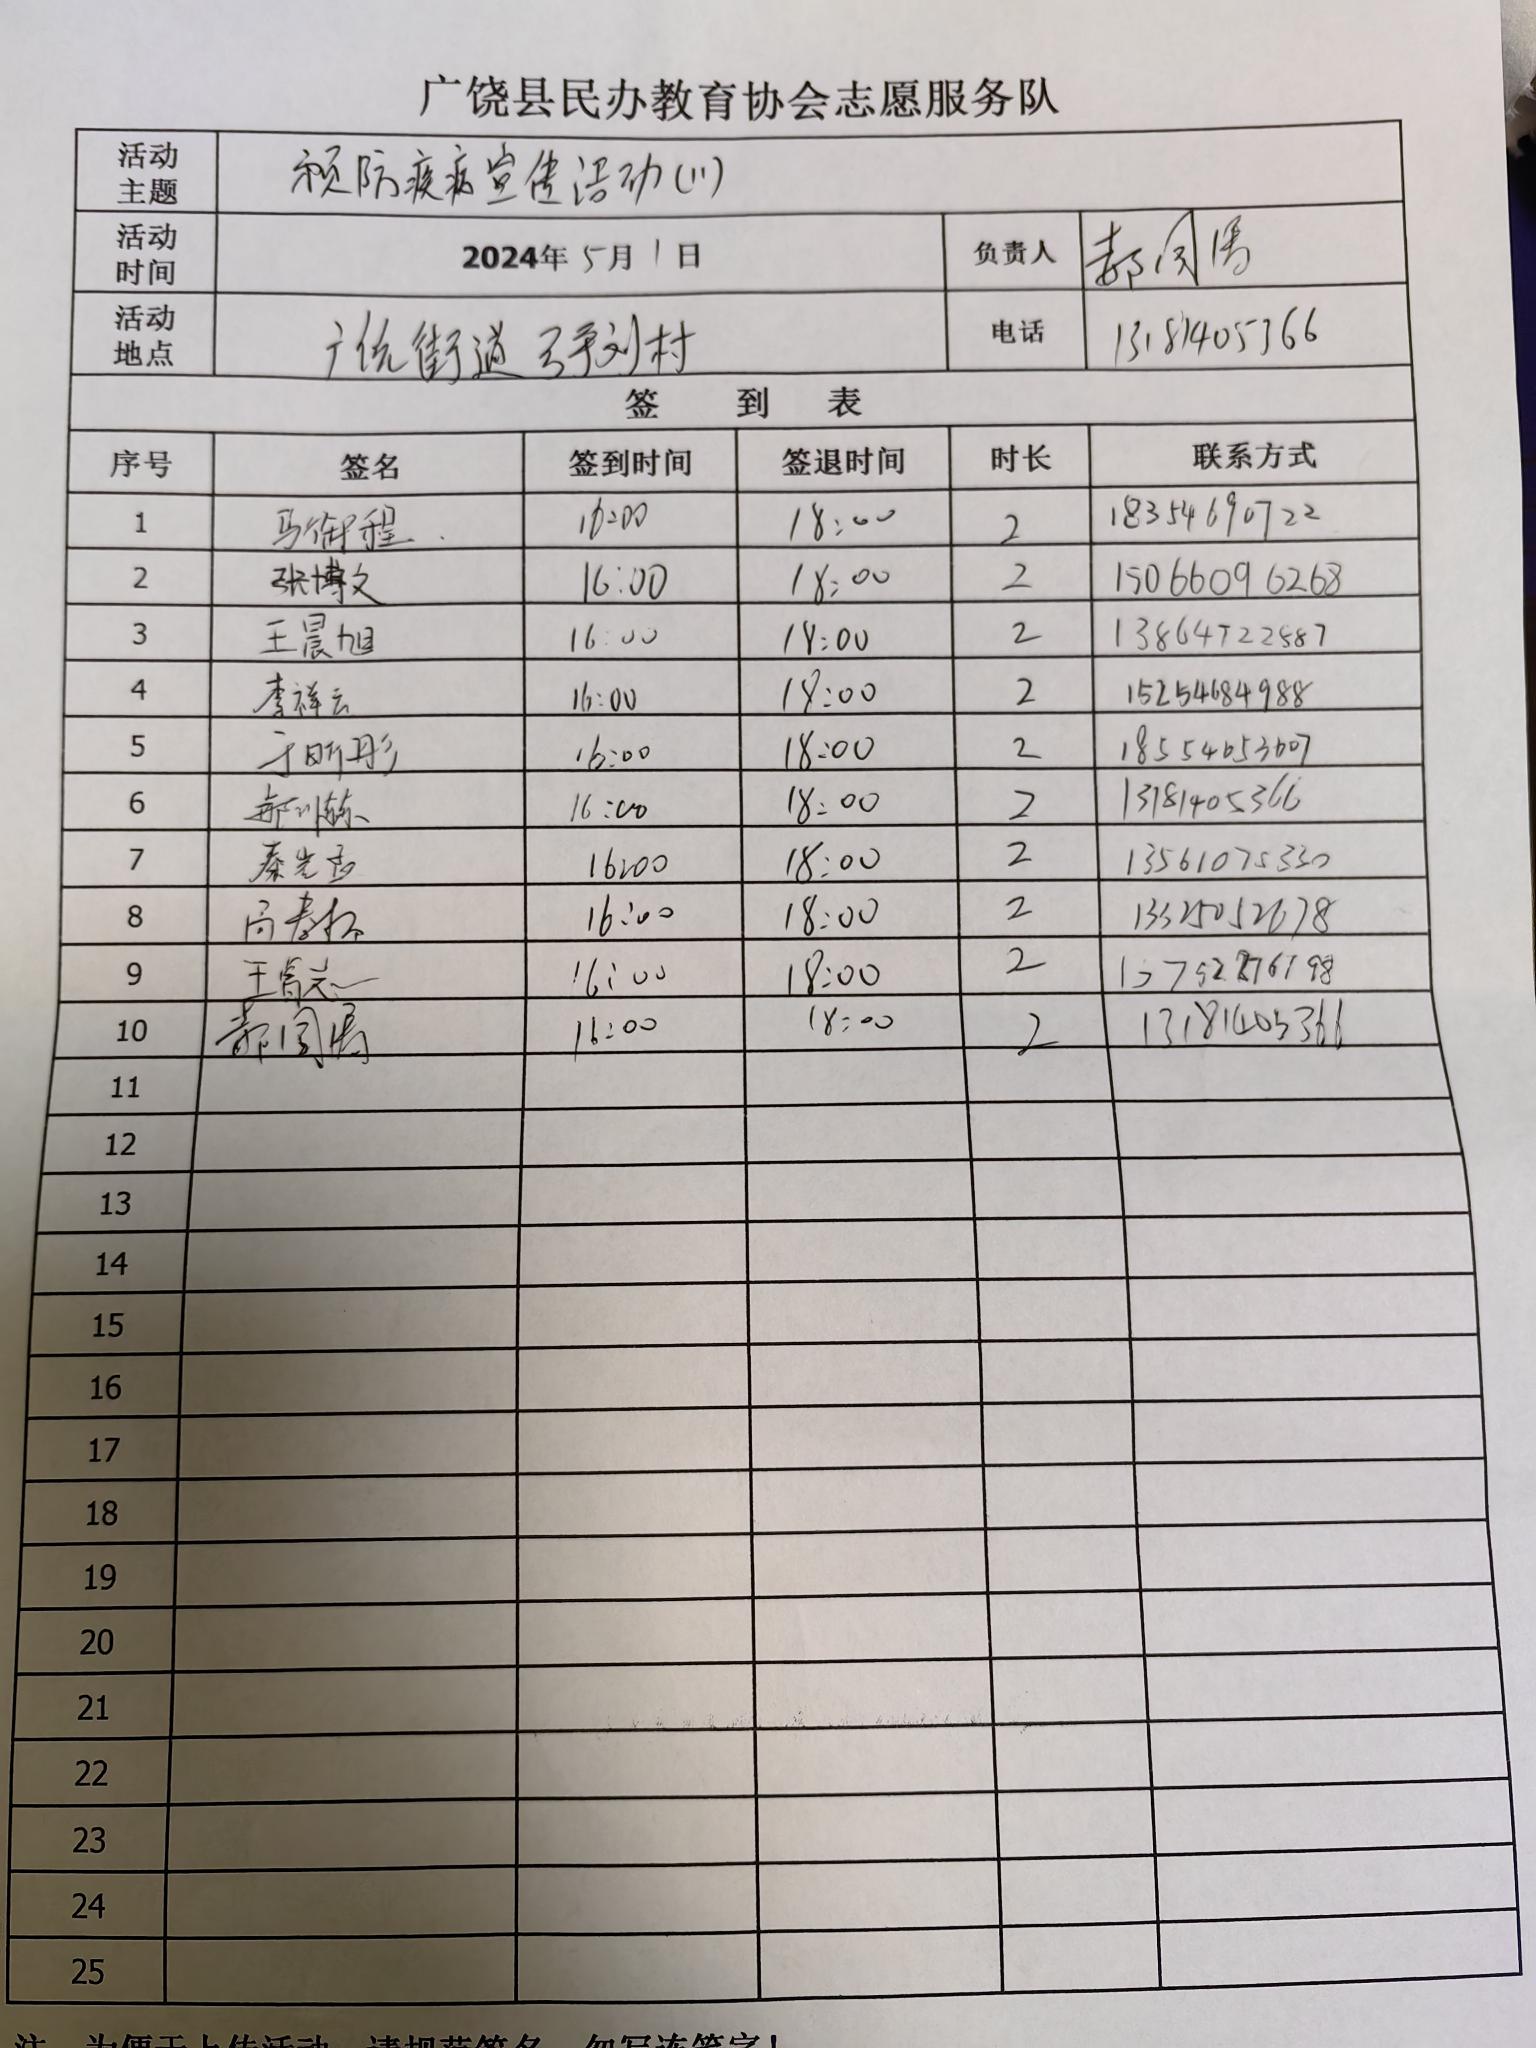 广饶县民办教育协会志愿服务队
活动主题 预防疾病宣传活动(11)
活动时间 2024年5月1日 负责人
活动地点 广饶街道 刘村 电话 13181405366
签 到 表
序号 签名 签到时间 签退时间 时长 联系方式
1 马 程 16:00 18:00 2 18354690722
2 张博文 16:00 18:00 2 15066096268
3 王晨旭 16:00 18:00 2 13864722887
4 李祥云 16:00 18:00 2 15254684988
5 于昕彤 16:00 18:00 2 18554653607
6 16:00 18:00 2 13181405366
7 秦 16:00 18:00 2 13561075330
8 16:00 18:00 2
9 王 16:00 18:00 2
10 16:00 18:00 2 13181405366
11
12
13
14
15
16
17
18
19
20
21
22
23
24
25